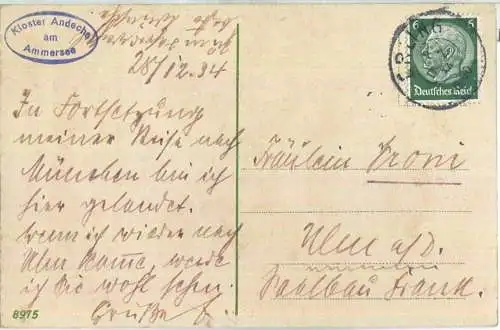 Kloster Andechs
am
Ammersee
28/12.34
In Fortsetzung
meiner Reise nach
München bin ich
hier gelandet.
Wenn ich wieder nach
Ulm komme, werde
ich Sie wohl sehen.
Grüße
8975
6 6
Deutsches Reich
Fräulein Vroni
Ulm a/D.
Saalbau Frank.